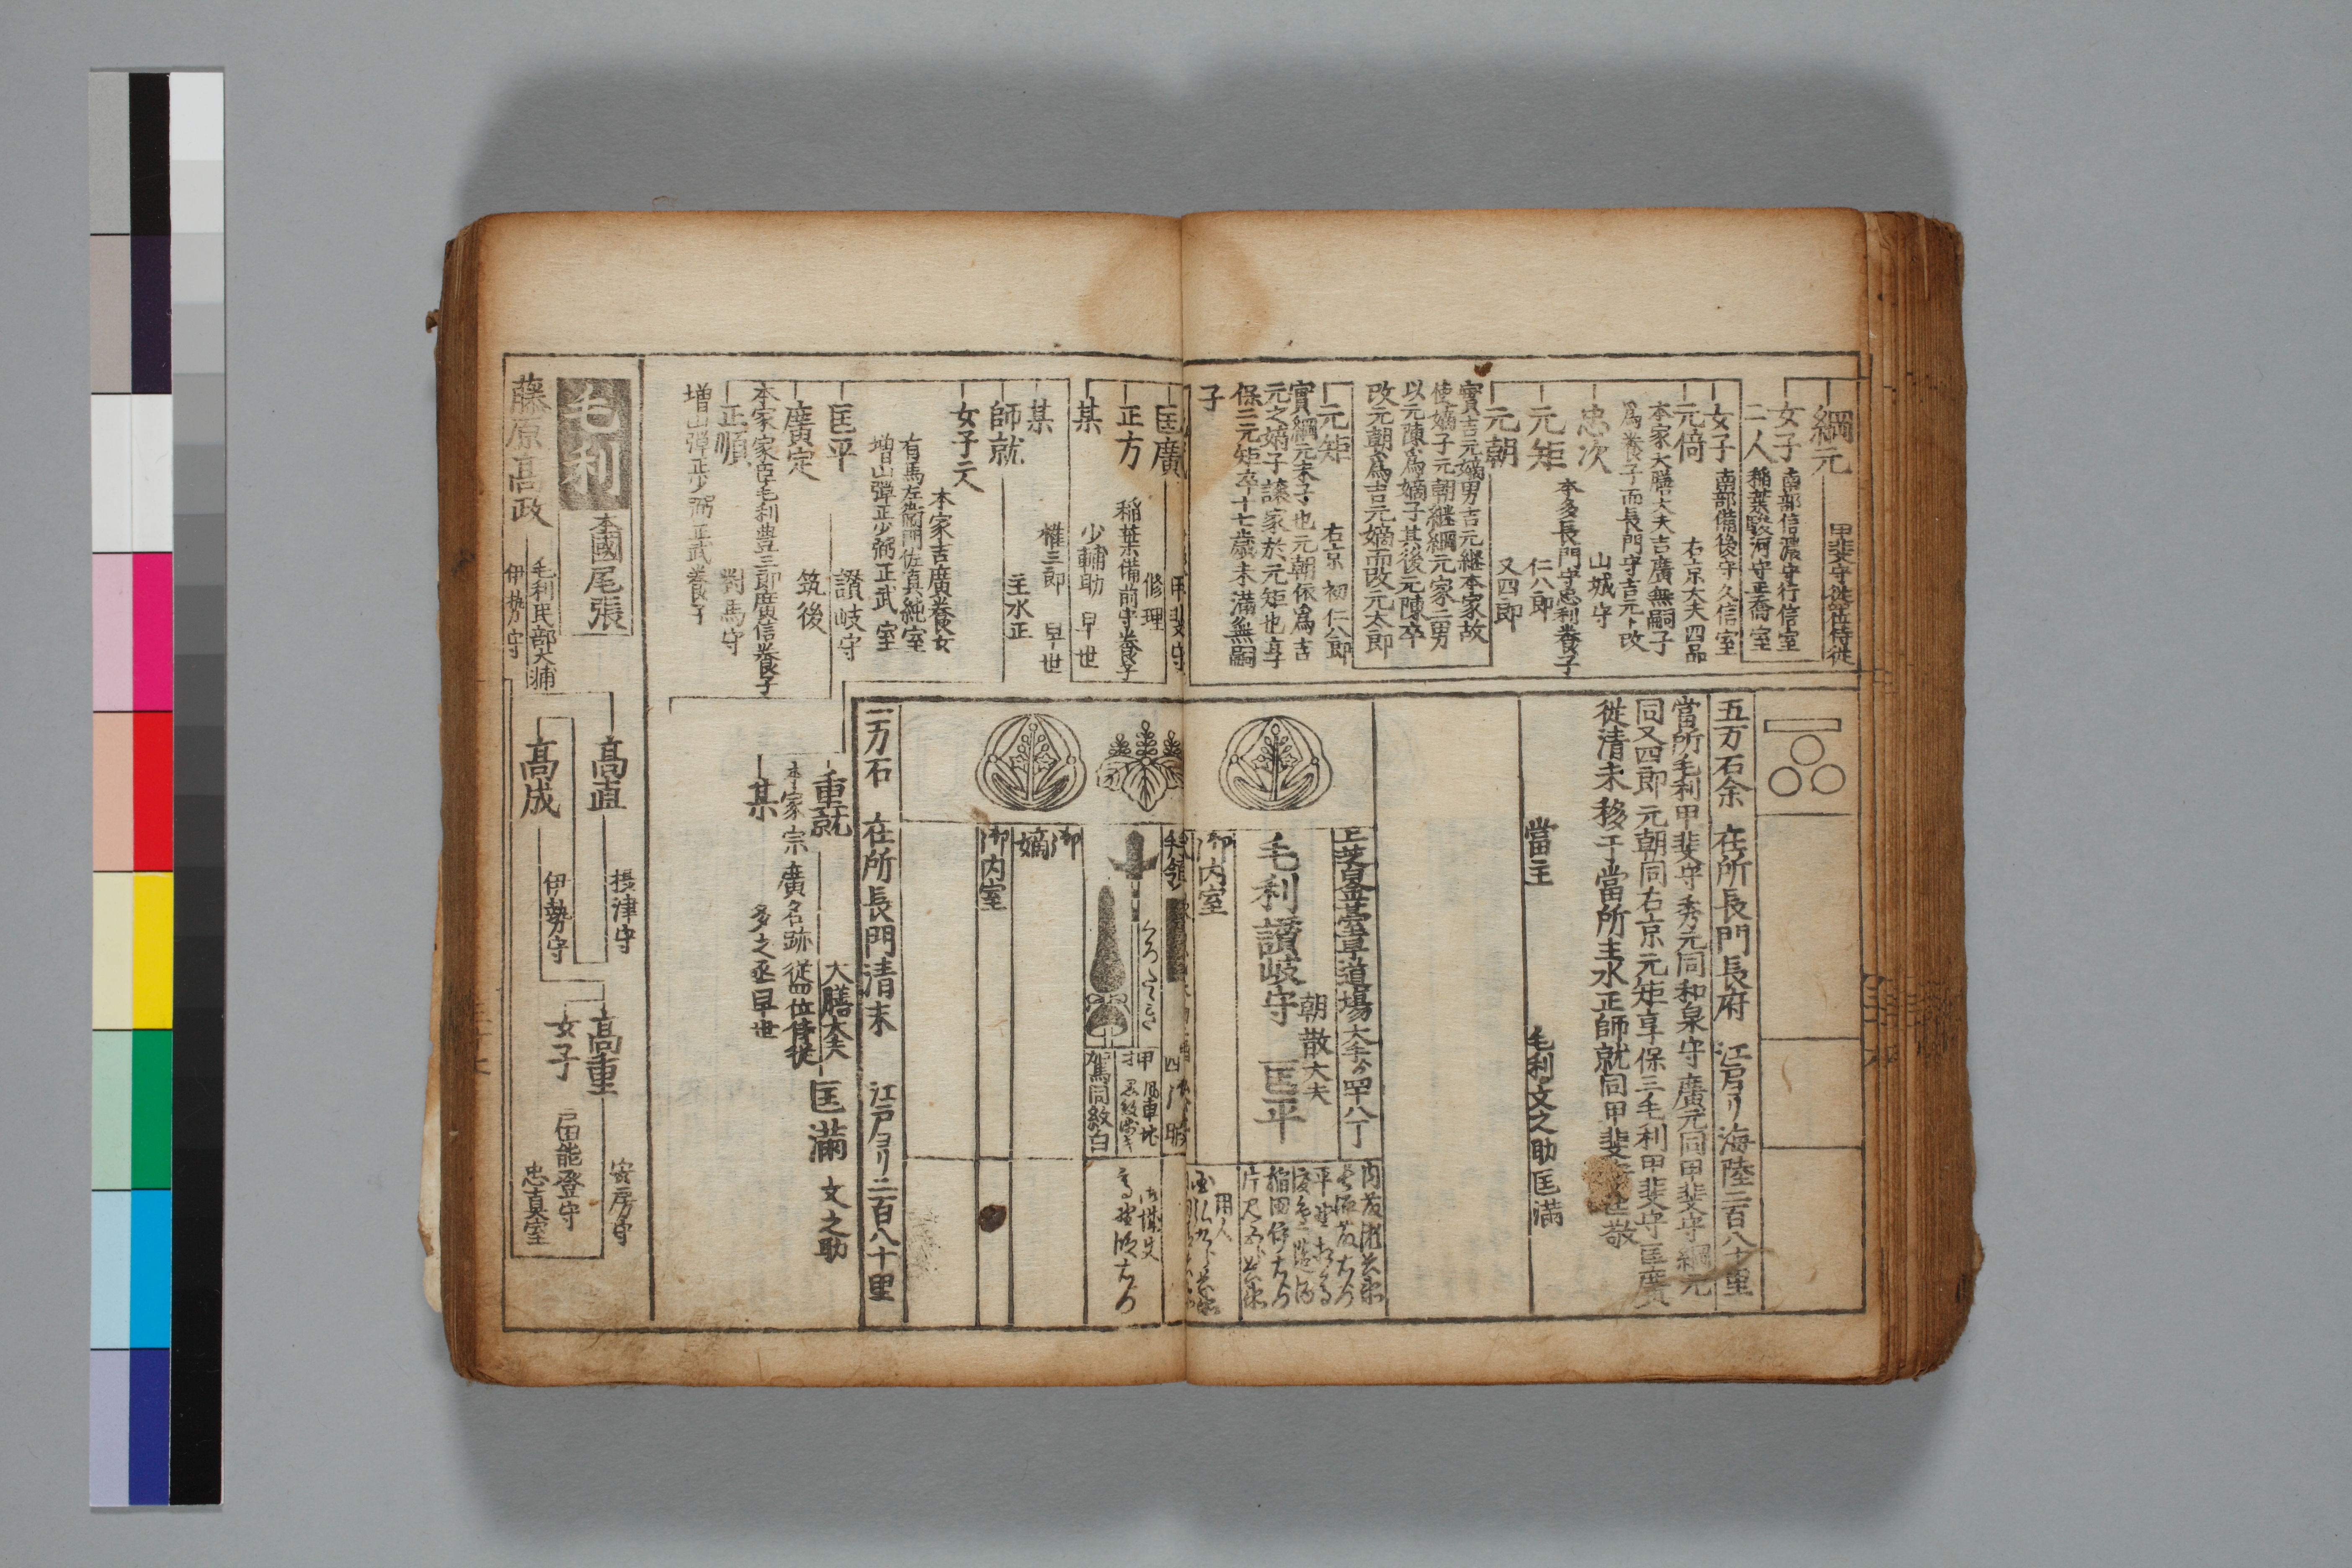 綱元
甲斐守従四位侍従
女子
二人
南部信濃守行信室
稲葉駿河守正喬室
女子
南部備後守久信室
元倚
右京大夫四品
本家大膳大夫吉廣無嗣子
為養子而長門守吉元ト改
忠次
山城守
本多長門守忠利養子
元矩
仁八郎
元朝
又四郎
實吉元嫡男吉元継本家故
使嫡子元朝継綱元家二男
以元陳為嫡子其後元陳卒
改元朝為吉元嫡而改元太郎
元矩
右京 初仁八郎
實綱元末子也元朝依為吉
元之嫡子譲家於元矩也享
保三元矩卒十七歳未満無嗣
子
五万石余 在所長門長府 江戸ヨリ海陸二百八十里
當所毛利甲斐守秀元同和泉守廣元同甲斐守綱元
同又四郎元朝同右京元矩享保三毛利甲斐守匡廣
従清末移于當所主水正師就同甲斐
當主
毛利文之助匡満
上芝白金臺早道場
大手ゟ四十八丁
毛利讃岐守 匡平
朝散大夫
御内室
用人
匡廣
甲斐守
正方
修理
稲葉備前守養子
某
少輔助 早世
某
権三郎 早世
師就
主水正
女子六
本家吉廣養女
有馬左衛門佐真純室
増山弾正少弼正武室
匡平
讃岐守
廣定
筑後
本家家臣毛利豊三郎廣信養子
正順
對馬守
増山弾正少弼正武養子
御嫡
御内室
駕同紋白
一万石 在所長門清末 江戸ヨリ二百八十里
重就
大膳大夫
本家宗廣名跡従四位侍従
匡満 文之助
某
多之丞早世
毛利
本國尾張
藤原髙政
毛利民部大輔
伊勢守
髙直
摂津守
髙成
伊勢守
髙重
安房守
女子
戸田能登守
忠真室